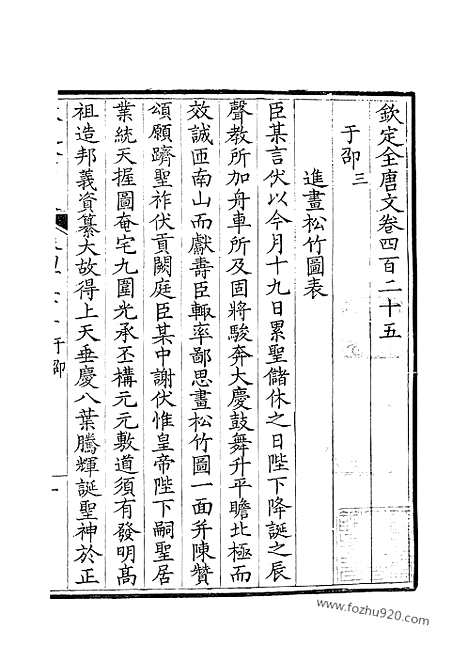 欽定全唐文卷四百二十五
于邵三
進畫松竹圖表
臣某言伏以今月十九日累聖儲休之日陛下降誕之辰
聲教所加舟車所及固將駿奔大慶鼓舞升平瞻北極而
效誠匝南山而獻壽臣輒率鄙思畫松竹圖一面并陳贊
頌願躋聖祚伏貢闕庭臣某中謝伏惟皇帝陛下嗣聖居
業統天握圖奄宅九圍光承丕構元元敷道須有發明高
祖造邦義資纂大故得上天垂慶八葉騰輝誕聖神於正
于邵
一
www.fozhu920.com